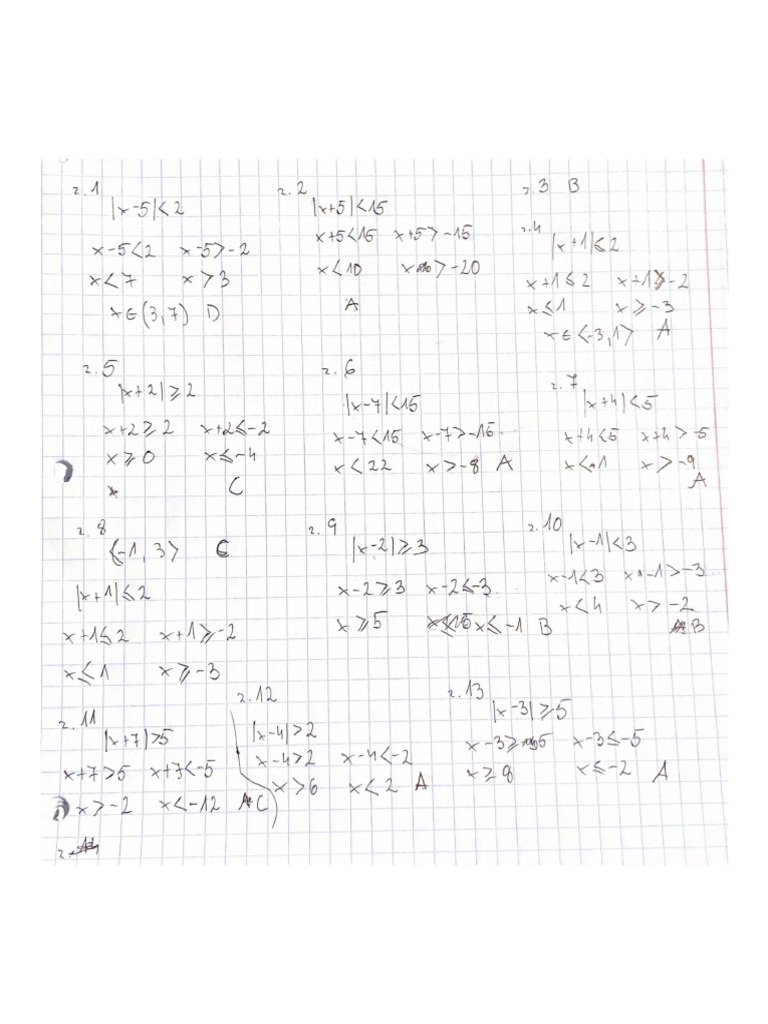 z.1
|x-5|<2
x-5<2 x-5>-2
x<7 x>3
x∈(3,7) D
z.2
|x+5|<15
x+5<15 x+5>-15
x<10 x>-20
A
z.3 B
z.4
|x+1|≤2
x+1≤2 x+1≥-2
x≤1 x≥-3
x∈<-3,1> A
z.5
|x+2|≥2
x+2≥2 x+2≤-2
x≥0 x≤-4
x C
z.6
|x-7|<15
x-7<15 x-7>-15
x<22 x>-8 A
z.7
|x+4|<5
x+4<5 x+4>-5
x<1 x>-9
A
z.8
<-1,3> C
|x+1|≤2
x+1≤2 x+1≥-2
x≤1 x≥-3
z.9
|x-2|≥3
x-2≥3 x-2≤-3
x≥5 x≤-1 B
z.10
|x-1|<3
x-1<3 x-1>-3
x<4 x>-2
B
z.11
|x+7|>5
x+7>5 x+7<-5
x>-2 x<-12 C
z.12
|x-4|>2
x-4>2 x-4<-2
x>6 x<2 A
z.13
|x-3|≥5
x-3≥5 x-3≤-5
x≥8 x≤-2 A
z.